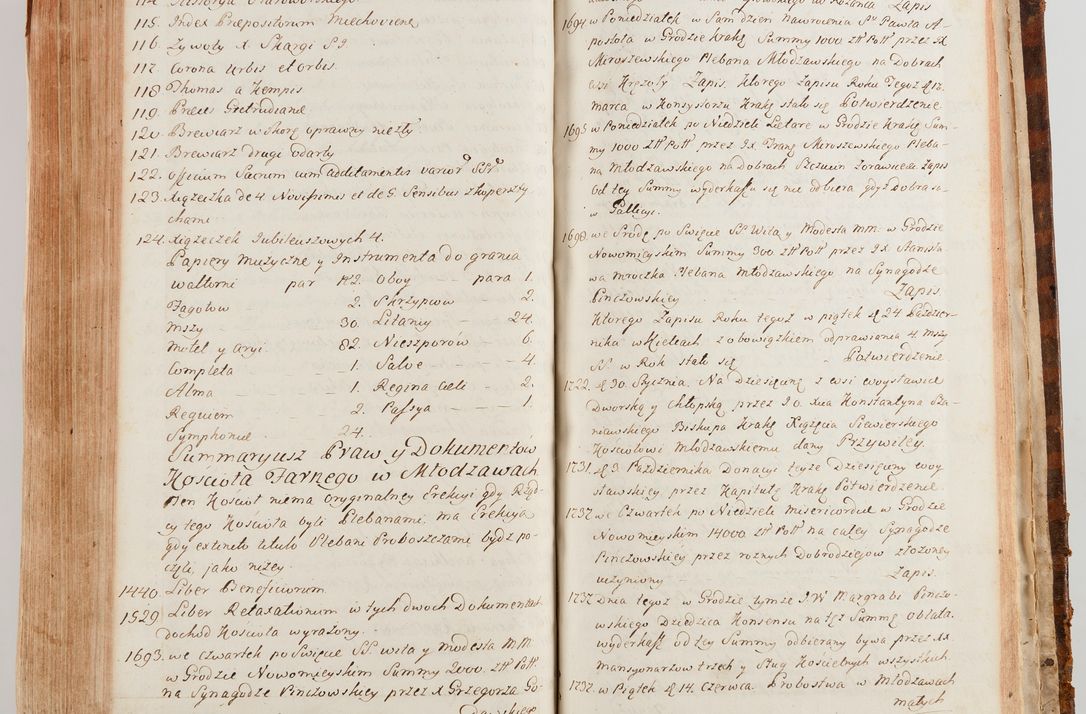 115. Index Prepositorum Miechoviens
116. Zywoty X Skargi S J.
117. Corona Urbis et Orbis.
118 Thomas a Kempis
119. Preces Gertrudianę
120. Brewiarz w skorę oprawny niezły
121. Brewiarz drugi odarty
122. Officium Sacrum cum additamentis varior SSr
123. Xiązeczka de 4 Novissimis et de 5 Sensibus z kopersztychami
124. Xiązeczek Jubileuszowych 4.
Papiery Muzyczne y Instrumenta do grania
Waltorni par No 2. Oboy para 1.
Fagotow 2. Skrzypiow 2.
Mszy 30. Litaniy 24.
Motet y Aryi 82. Nieszporów 6.
Completa 1. Salve 4.
Alma 1. Regina Cæli 2.
Requiem 2. Passya 1.
Symphonie 24.
Summaryusz Praw y Dokumentów
Kościoła Farnego w Młodzawach
Ten Kościoł niema oryginalney Erekcyi gdy Rządcy
tego Kościoła byli Plebanami. ma Erekcyą
gdy extincto titulo Plebani Proboszczami bydź poczęli,
jako nizey.
1440. Liber Beneficiorum.
1529. Liber Retaxationum w tych dwoch Dokumentach
dochod Kościoła wyrażony.
1693. we Czwartek po Swięcie SS. Wita y Modesta M.M.
w Grodzie Nowomieyskim Summy 2000. ztt Pott
na Synagodze Pinczowskiey przez X Grzegorza Go-
Zapis
1694 w Poniedziałek w Sam dzien Nawrocenia So Pawła A-
postoła w Grodzie Krakę Summy 1000 ztt Pott przez JX
Meroszewskiego Plebana Młodzawskiego na Dobrach
wsi Kręzoły Zapis. Ktorego Zapisu Roku Tegoż d. 12.
Marca w Konsystorzu Krakę stało się Potwierdzenie
1695 w Poniedziałek po Niedzieli Lætare w Grodzie Krakę Sum-
my 1000 ztt Pott przez JX Franę Meroszewskiego Pleba-
na Młodzawskiego na Dobrach Szczucin Zorawicza Zapis
Od tey Summy wyderkassu się nie odbiera gdyż Dobra są
w Gallicyi.
1698. we Srodę po Swięcie SS Wita y Modesta M.M. w Grodzie
Nowomieyskim Summy 300 ztt Pott przez JX Stanisła-
wa Mroczka Plebana Młodzawskiego na Synagodze
Pinczowskiey Zapis.
Ktorego Zapisu Roku tegoż w piątek d 24 Paździer-
nika w Kielcach z obowiązkiem odprawiania 4. Mszy
SS. w Rok stało się Potwierdzenie
1722. d 30. Stycznia. Na Dziesięcinę z wsi Woysławice
Dworską y Chłopską przez JO. Xcia Konstantyna Sza-
niawskiego Biskupa Krakę Xiążęcia Siewierskiego
Kościołowi Młodzawskiemu dany Przywiley.
1731. d 3. Października Donacyi teyże Dziesięciny Woy
sławskiey przez Kapitułę Krakę Potwierdzenie.
1737. we Czwartek po Niedzieli Misericordiæ w Grodzie
Nowomieyskim 14000 ztt Pott na całey Synagodze
Pinczowskiey przez roznych Dobrodziejow złożoney
uczyniony Zapis.
1737. Dnia tegoż w Grodzie tymże JW Margrabi Pinczo-
wskiego Dziedzica Konsensu na tęż Summę Oblata.
wyderkass od tey Summy odbierany bywa przez XX
Mansyonarzow trzech y Sług Kościelnych wszystkich.
1737. w Piątek d 14. Czerwca Probostwa w Młodzawach
małych